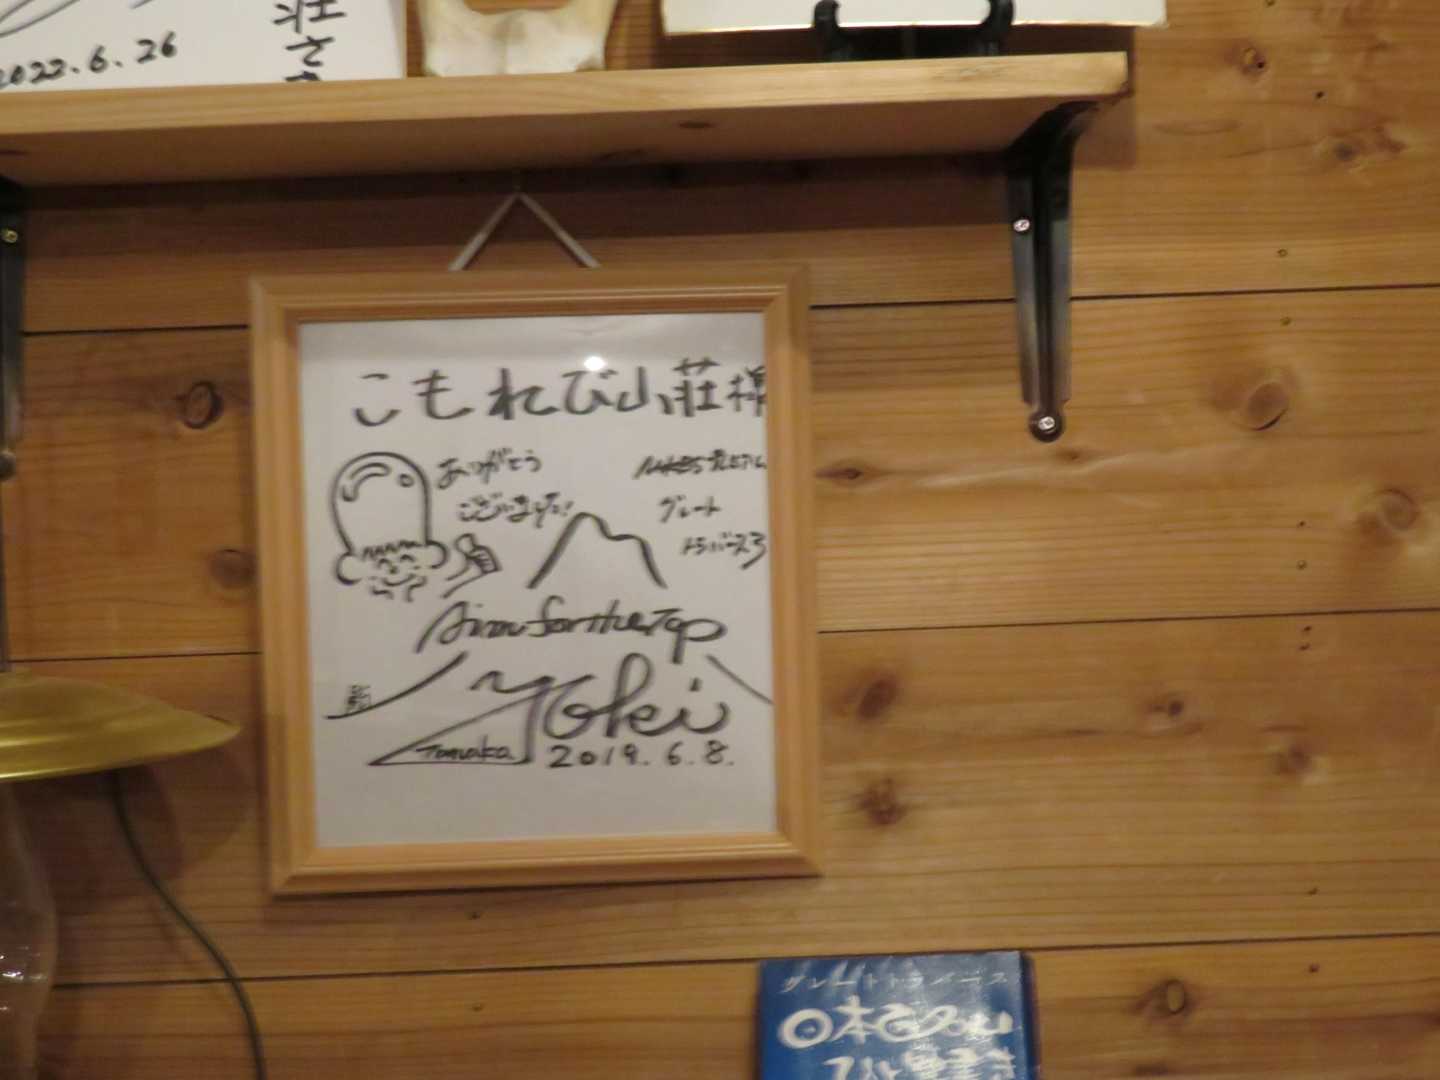 2022.6.26
荘さま
こもれび山荘様
ありがとう
ございます!!
グレート
トラバース3
Aim for the Top
Yoki
Tanaka
2019.6.8.
グレートトラバース
日本百名山
ひと筆書き